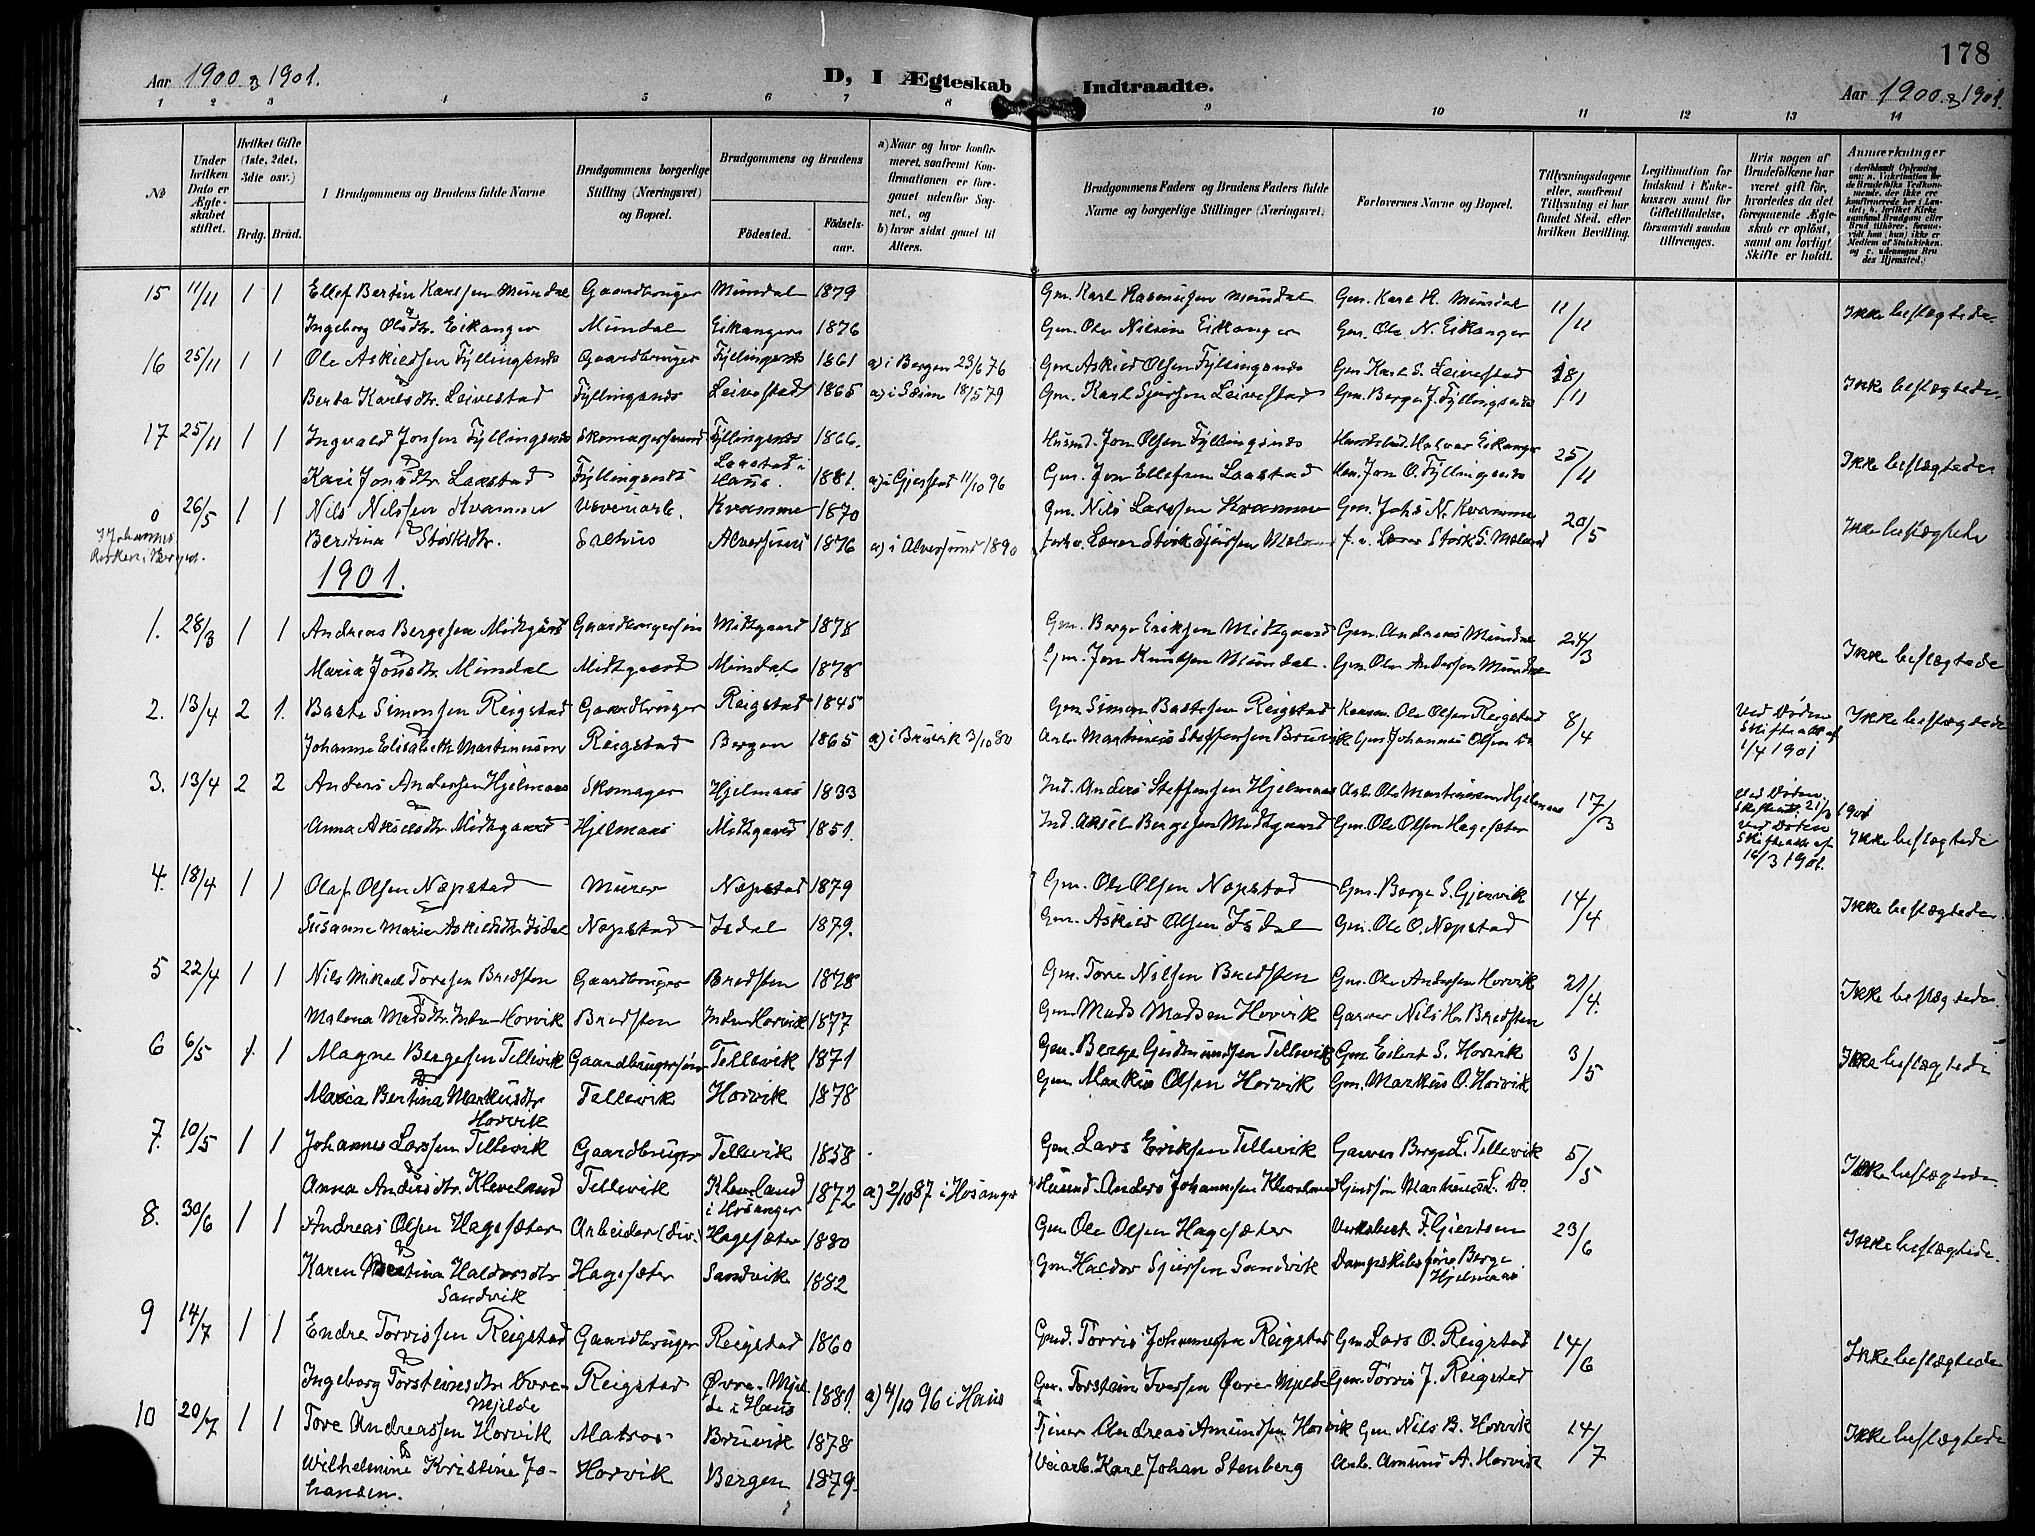 178
Aar 1900 & 1901. D, I Ægteskab Indtraadte. Aar 1900 & 1901.
1 2 3 4 5 6 7 8 9 10 11 12 13 14
No
Under hvilken Dato er Ægteskabet stiftet.
Hvilket Gifte (1ste, 2det, 3die osv.)
Brdg. Brud.
I Brudgommens og Brudens fulde Navne
Brudgommens borgerlige Stilling (Næringsvei) og Bopæl.
Brudgommens og Brudens
Födested. Födselsaar.
a) Naar og hvor konfirmeret, saafremt Konfirmationen er foregaaet udenfor Sognet, og
b) hvor sidst gaaet til Alters.
Brudgommens Faders og Brudens Faders fulde Navne og borgerlige Stillinger (Næringsvei)
Forlovernes Navne og Bopæl.
Tillysningsdagene eller, saafremt Tillysning ei har fundet Sted, efter hvilken Bevilling.
Legitimation for Indskud i Enkekassen samt for Giftetilladelse, forsaavidt saadan tiltrænges.
Hvis nogen af Brudefolkene har været gift för, hvorledes da det foregaaende Ægteskab er oplöst, samt om lovligt Skifte er holdt.
Anmærkninger
15 11/11 1 1 Ellef Bertin Karlsen Mundal Gaardbruger Mundal 1879 Gm. Karl Rasmussen Mundal Gm. Karl R. Mundal 11/11 Ikke beslægtede.
Ingeborg Olsdtr. Eikanger Mundal Eikanger 1876 Gm. Ole Nilsen Eikanger Gm. Ole N. Eikanger
16 25/11 1 1 Ole Askildsen Fyllingsnes Gaardbruger Fyllingsnes 1861 a) i Bergen 23/6 76 Gm. Askild Olsen Fyllingsnes Gm. Karl S. Leivestad 18/11 Ikke beslægtede.
Berta Karlsdtr. Leivestad Fyllingsnes Leivestad 1865 a) i Sæim 18/5 79 Gm. Karl Sjursen Leivestad Gm. Berge J. Fyllingsnes
17 25/11 1 1 Ingvald Jonsen Fyllingsnes Skomagersvend Fyllingsnes 1866. Husmd. Jon Olsen Fyllingsnes Halvor Eikanger 25/11 Ikke beslægtede
Kari Jonsdtr. Laastad Fyllingsnes Laastad i Haus. 1881. a) i Gjerstad 11/10 96 Gm. Jon Ellefsen Laastad Jon O. Fyllingsnes
0 26/5 1 1 Nils Nilssen Kvamme Væveriarb. Kvamme 1870 Gm. Nils Larssen Kvamme Gm. Johs N. Kvamme 20/5 Ikke beslægtede
I Johannes Kirken i Bergen.
Bertina Størksdtr. Salhus Alversund 1876 a) i Alversund 1890 Lærer Størk Sjursen Meland f. v. Lærer Størk S. Meland
1901.
1. 28/3 1 1 Andreas Bergesen Midtgaard Gaardbrugersøn Midtgaard 1878 Gm. Berge Eriksen Midtgaard Gm. Andreas Mundal 24/3 Ikke beslægtede
Maria Jonsdtr. Mundal Midtgaard Mundal 1878 Gm. Jon Knutsen Mundal. Gm. Ole Andersen Mundal
2. 13/4 2 1. Baste Simonsen Reigstad Gaardbruger Reigstad 1845 Gm. Simon Bastesen Reigstad Ole Olsen Reigstad 8/4 Ved Døden Skifteatt. af 1/4 1901 Ikke beslægtede
Johanne Elisabeth Martinusen Reigstad Bergen 1865 a) i Bruvik 3/10 80 Arb. Martinus Steffensen Bruvik Gm. Johannes Olsen Do
3. 13/4 2 2 Anders Andersen Hjelmaas Skomager Hjelmaas 1833 Ind. Anders Steffensen Hjelmaas Arb. Ole Martinussen Hjelmaas 17/3 ved Døden. Skifteatt. 21/3 1901 Ved Døden Skifteatt. af 16/3 1901. Ikke beslægtede
Anna Akselsdtr. Midtgaard Hjelmaas Midtgaard 1851. Ind. Aksel Bergesen Midtgaard Gm. Ole Olsen Hagesæter
4. 18/4 1 1 Olaf Olsen Næpstad Murer Næpstad 1879 Gm. Ole Olsen Næpstad Gm. Berge S. Gjervik 14/4 Ikke beslægtede
Susanne Marie Askildsdtr. Isdal Næpstad Isdal 1879. Gm. Askild Olsen Isdal Gm. Ole O. Næpstad
5 22/4 1 1 Nils Mikael Toresen Bredsten Gaardbruger Bredsten 1878 Gm. Tore Nilsen Bredsten Gm. Ole Andersen Horvik 21/4. Ikke beslægtede.
Malena Madsdtr. Indre Horvik Bredsten Indre Horvik 1877 Gm. Mads Madsen Horvik Garver Nils H. Bredsten
6 6/5 1 1 Magne Bergesen Tellevik Gaardbrugersøn Tellevik 1871 Gm. Berge Gudmundsen Tellevik Gm. Eilert S. Horvik 3/5 Ikke beslægtede
Maria Bertina Markusdtr Horvik Tellevik Horvik 1878 Gm. Markus Olsen Horvik Gm. Markus O. Horvik
7. 10/5 1 1 Johannes Larssen Tellevik Gaardbruger Tellevik 1858 Gm. Lars Eriksen Tellevik Garver Berge L. Tellevik 5/5 Ikke beslægtede.
Anna Andersdtr. Kleveland Tellevik Kleveland i Hosanger 1872 a) 2/10 87 i Hosanger Husmd. Anders Johannesen Kleveland Martinus L. Do.
8. 30/6 1 1 Andreas Olsen Hagesæter Arbeider (div.) Hagesæter 1880 Gm. Ole Olsen Hagesæter F. Giertsen 23/6 Ikke beslægtede.
Karen Bertina Haldorsdtr Sandvik Hagesæter Sandvik 1882 Gm. Haldor Sjursen Sandvik Dampskibsfører Berge Hjelmaas
9 14/7 1 1 Endre Torrissen Reigstad Gaardbruger Reigstad 1860 Torris Johannessen Reigstad Gm. Lars O. Reigstad 14/6 Ikke beslægtede
Ingeborg Torsteinsdtr Øvre-Mjelde Reigstad Øvre-Mjelde i Haus 1881. a) 4/10 96 i Haus Gm. Torstein Iversen Øvre Mjelde Gm. Torris J. Reigstad
10 20/7 1 1 Tore Andreassen Horvik Matros Bruvik 1878 Andreas Amundsen Horvik Gm. Nils B. Horvik 14/7 Ikke beslægtede
Wilhelmine Kristine Johansen. Horvik Bergen 1879. Veiarb. Karl Johan Stenberg Arb. Amund A. Horvik